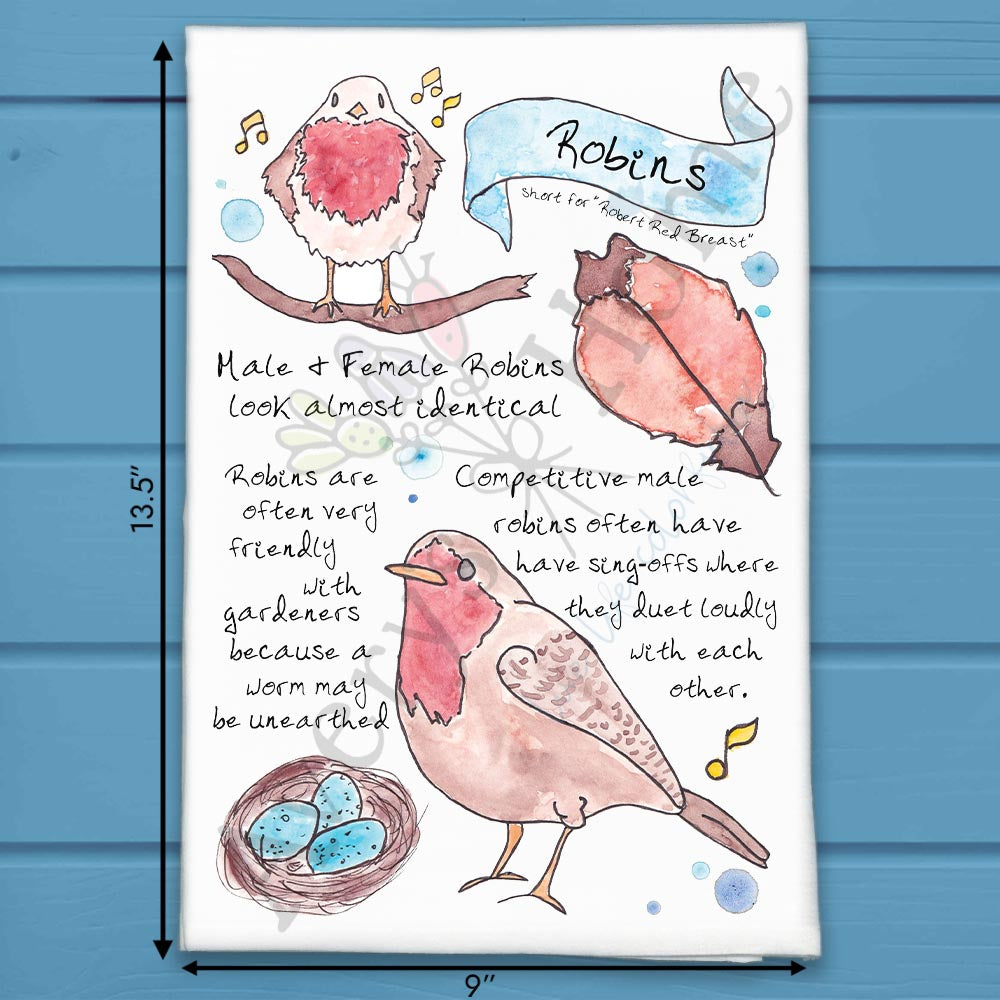 Robins
short for "Robert Red Breast"
Male + Female Robins
look almost identical
Robins are
often very
friendly
with
gardeners
because a
worm may
be unearthed
Competitive male
robins often have
have sing-offs where
they duet loudly
with each
other.
13.5"
9"